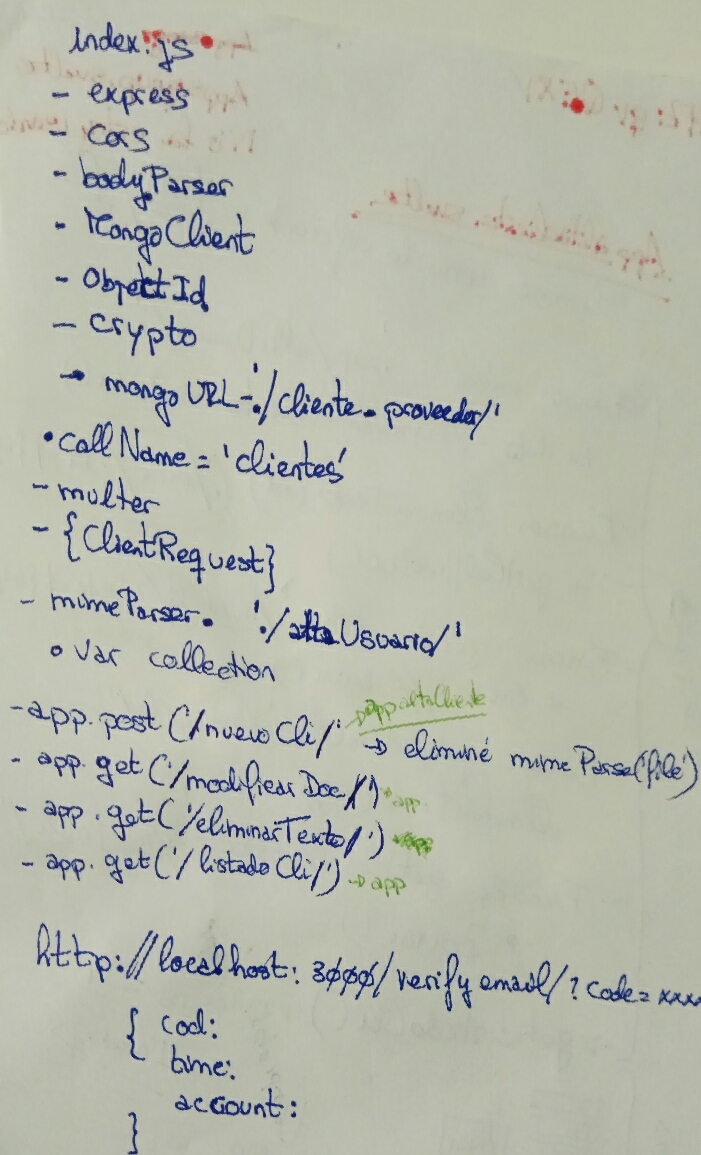 index.js
- express
- cors
- bodyParser
- MongoClient
- ObjectId
- crypto
→ mongo URL - './cliente_proveedor/'
• collName = 'clientes'
- multer
- {ClientRequest}
- mimeParser. './altaUsuario/'
• var collection
→ app altaCliente
- app.post ('/nuevoCli/' → eliminé mimeParse(file)
- app.get ('/modificarDoc/') → app
- app.get ('/eliminarTexto/') → app
- app.get ('/listadoCli/') → app
http://localhost:3000/verify email/?code=xxxx
{ cod:
time:
account:
}